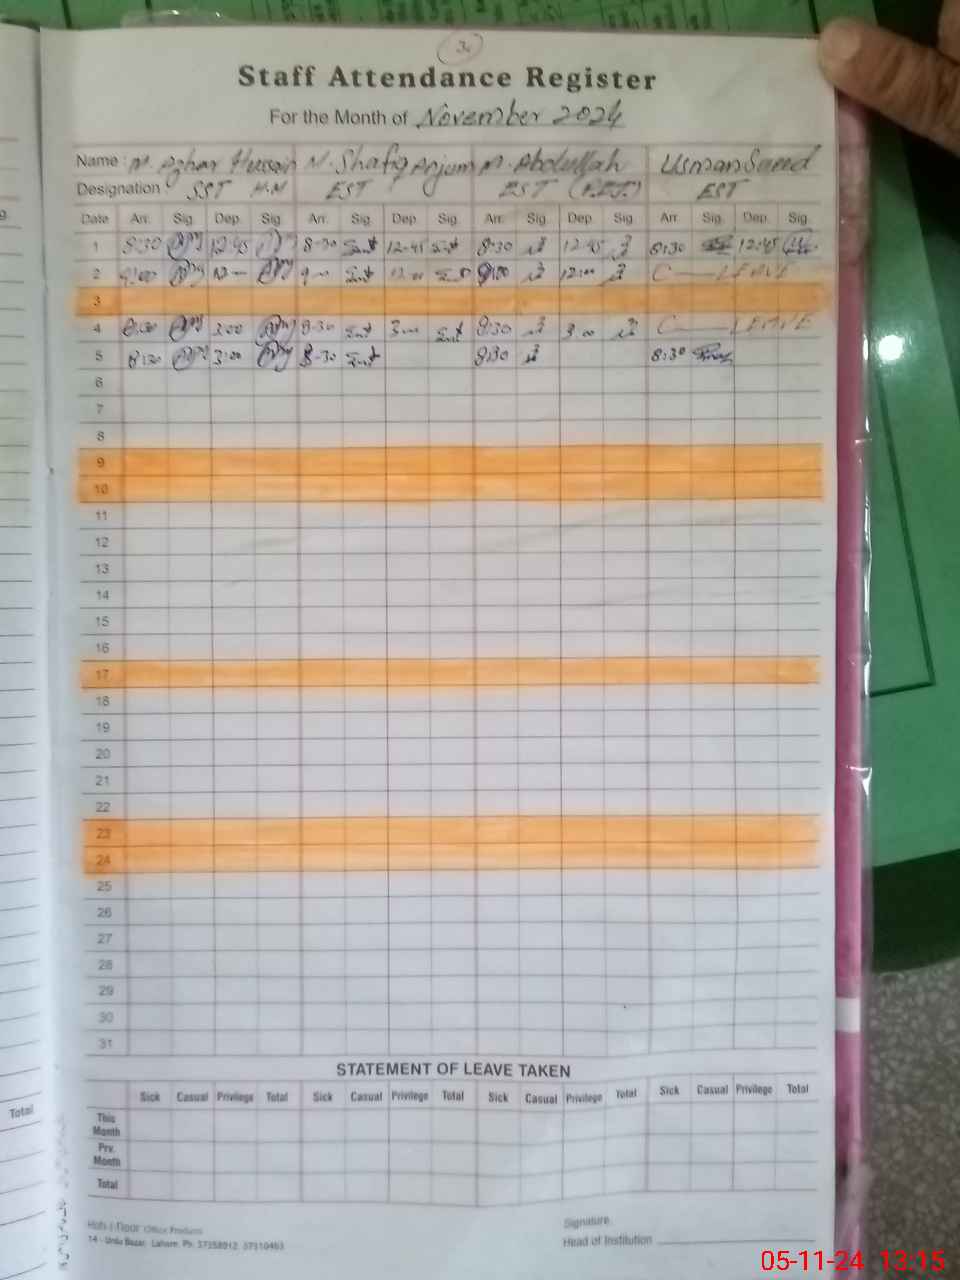 3.
Staff Attendance Register
For the Month of November 2024
Name : M. Azhar Hussain M. Shafiq Anjum M. Abdullah Usman Saeed
Designation SST H.M EST EST (P.ET.) EST
Date Arr. Sig. Dep. Sig. Arr. Sig. Dep. Sig. Arr. Sig. Dep. Sig. Arr. Sig. Dep. Sig.
1 8:30 12:45 8-30 12-45 8:30 12:45 8:30 12:45
2 9:00 12- 9- 12- 9:00 12:00 C LEAVE
3
4 8:30 3:00 8-30 3- 8:30 3.00 C LEAVE
5 8:30 3:00 8-30 8:30 8:30
6
7
8
9
10
11
12
13
14
15
16
17
18
19
20
21
22
23
24
25
26
27
28
29
30
31
STATEMENT OF LEAVE TAKEN
Sick Casual Privilege Total Sick Casual Privilege Total Sick Casual Privilege Total Sick Casual Privilege Total
This Month
Prv. Month
Total
Total
Office Products
14 - Urdu Bazar, Lahore. Ph: 37358912, 37310463
Signature.
Head of Institution
05-11-24 13:15